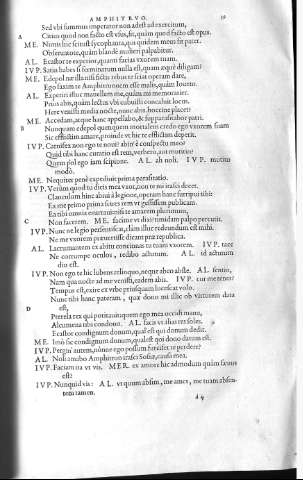 AMPHITRVO.
Sed vbi summus imperator non adest ad exercitum,
A Citius quod non facto est vsus, fit, quàm quod facto est opus.
ME. Nimis hic scitust sycophanta, qui quidem meus sit pater.
Obseruatote, quàm blandè mulieri palpabitur.
AL. Ecastor te experior, quanti facias vxorem tuam.
IVP. Satin habes si feminarum nulla est, quam æquè diligam?
ME. Edepol næ illa si istis rebus te sciat operam dare,
Ego faxim te Amphitruonem esse malis, quàm Iouem.
AL. Experiri istuc mauellem me, quàm mi memorarier.
Prius abis, quàm lectus vbi cubuisti concaluit locus.
Here venisti media nocte, nunc abis. hoccine placet?
ME. Accedam, atque hanc appellabo, & supparasitabor patri.
B Nunquam edepol quenquam mortalem credo ego vxorem suam
Sic efflictim amare, proinde vt hic te efflictim deperit.
IVP. Carnifex non ego te noui? abin' è conspectu meo?
Quid tibi hanc curatio est rem, verbero, aut muttitio?
Quoii ego iam scipione. AL. ah noli. IVP. mutito
modò.
ME. Nequiter penè expediuit prima parasitatio.
IVP. Verùm quod tu dicis mea vxor, non te mi irasci decet.
Clanculum hinc abii à legione, operam hanc surripui tibi:
Ex me primo prima scires rem vt gessissem publicam.
Ea tibi omnia enarraui. nisi te amarem plurimum,
C Non facerem. ME. facitne vt dixi? timidam palpo percutit.
IVP. Nunc ne legio persentiscat, clàm illuc redeundum est mihi.
Ne me vxorem præuertisse dicant præ republica.
AL. Lacrumantem ex abitu concinnas tu tuam vxorem. IVP. tace
Ne corrumpe oculos, redibo actutum. AL. id actutum
diu est.
IVP. Non ego te hic lubens relinquo, neque abeo abs te. AL. sentio,
Nam qua nocte ad me venisti, eadem abis. IVP. cur me tenes?
Tempus est, exire ex vrbe priusquam lucescat volo.
Nunc tibi hanc pateram, quæ dono mi illic ob virtutem data
D est,
Pterela rex qui potitauit, quem ego mea occidi manu,
Alcumena tibi condono. AL. facis vt alias res soles.
Ecastor condignum donum, quali est qui donum dedit.
ME. Imò sic condignum donum, quali est qui dono datum est.
IVP. Pergin' autem, nónne ego possum furcifer te perdere?
AL. Noli amabo Amphitruo irasci Sosiæ, causa mea.
IVP. Faciam ita vt vis. MER. ex amore hic admodum quàm sæuus
est?
IVP. Nunquid vis? AL. vt quum absim, me ames, me tuam absen-
tem tamen.